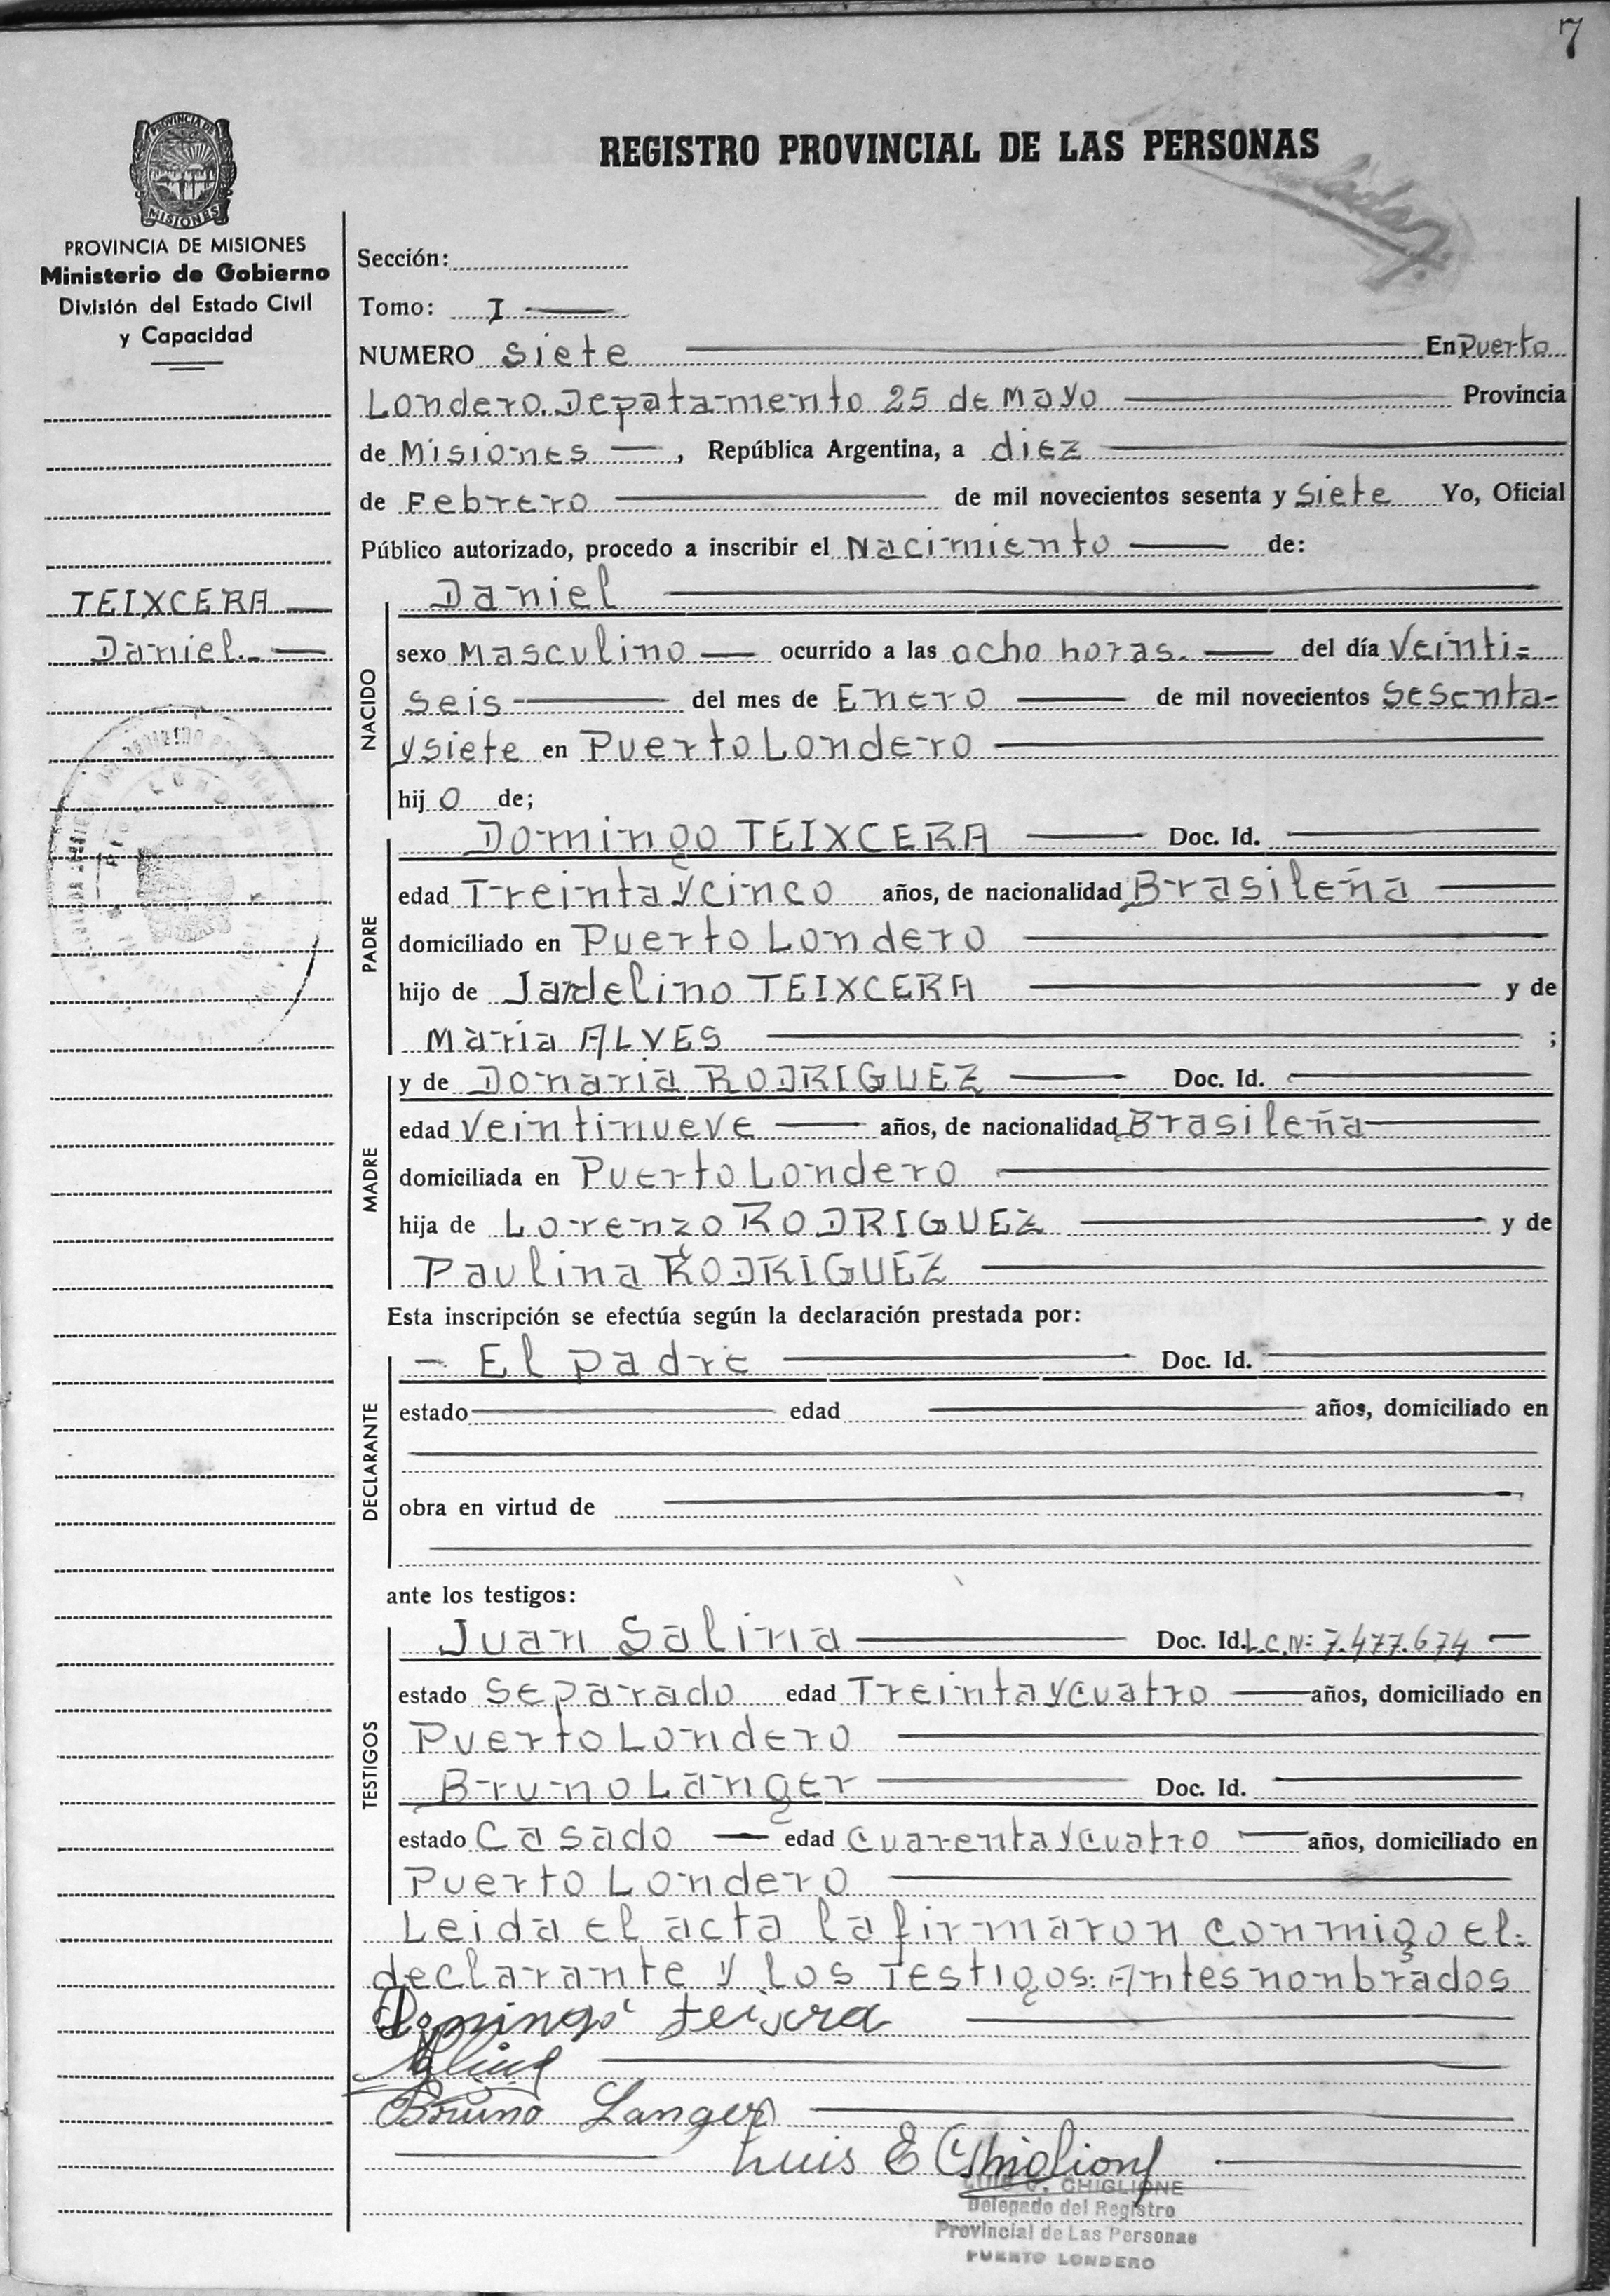 7
REGISTRO PROVINCIAL DE LAS PERSONAS
PROVINCIA DE
MISIONES
PROVINCIA DE MISIONES
Ministerio de Gobierno
División del Estado Civil
y Capacidad
TEIXCERA
Daniel.
Sección:
Tomo: I
NUMERO siete En Puerto
Londero. Depatamento 25 de Mayo Provincia
de Misiones, República Argentina, a diez
de Febrero de mil novecientos sesenta y siete Yo, Oficial
Público autorizado, procedo a inscribir el Nacimiento de:
NACIDO
Daniel
sexo Masculino ocurrido a las ocho horas. del día Veinti=
seis del mes de Enero de mil novecientos sesenta-
y siete en Puerto Londero
hij o de;
PADRE
Domingo TEIXCERA Doc. Id.
edad Treinta y cinco años, de nacionalidad Brasileña
domiciliado en Puerto Londero
hijo de Jardelino TEIXCERA y de
Maria ALVES ;
MADRE
y de Donaria RODRIGUEZ Doc. Id.
edad Veintinueve años, de nacionalidad Brasileña
domiciliada en Puerto Londero
hija de Lorenzo RODRIGUEZ y de
Paulina RODRIGUEZ
Esta inscripción se efectúa según la declaración prestada por:
DECLARANTE
- El padre Doc. Id.
estado edad años, domiciliado en
obra en virtud de
ante los testigos:
TESTIGOS
Juan Salina Doc. Id. L.C.Nº 7.477.674
estado Separado edad Treinta y cuatro años, domiciliado en
Puerto Londero
Bruno Langer Doc. Id.
estado Casado edad cuarenta y cuatro años, domiciliado en
Puerto Londero
Leida el acta la firmaron conmigo el=
declarante y los Testigos: Antes nonbrados
Domingo teixera
Bruno Langer
Luis E Chiglione
CHIGLIONE
Delegado del Registro
Provincial de Las Personas
PUERTO LONDERO